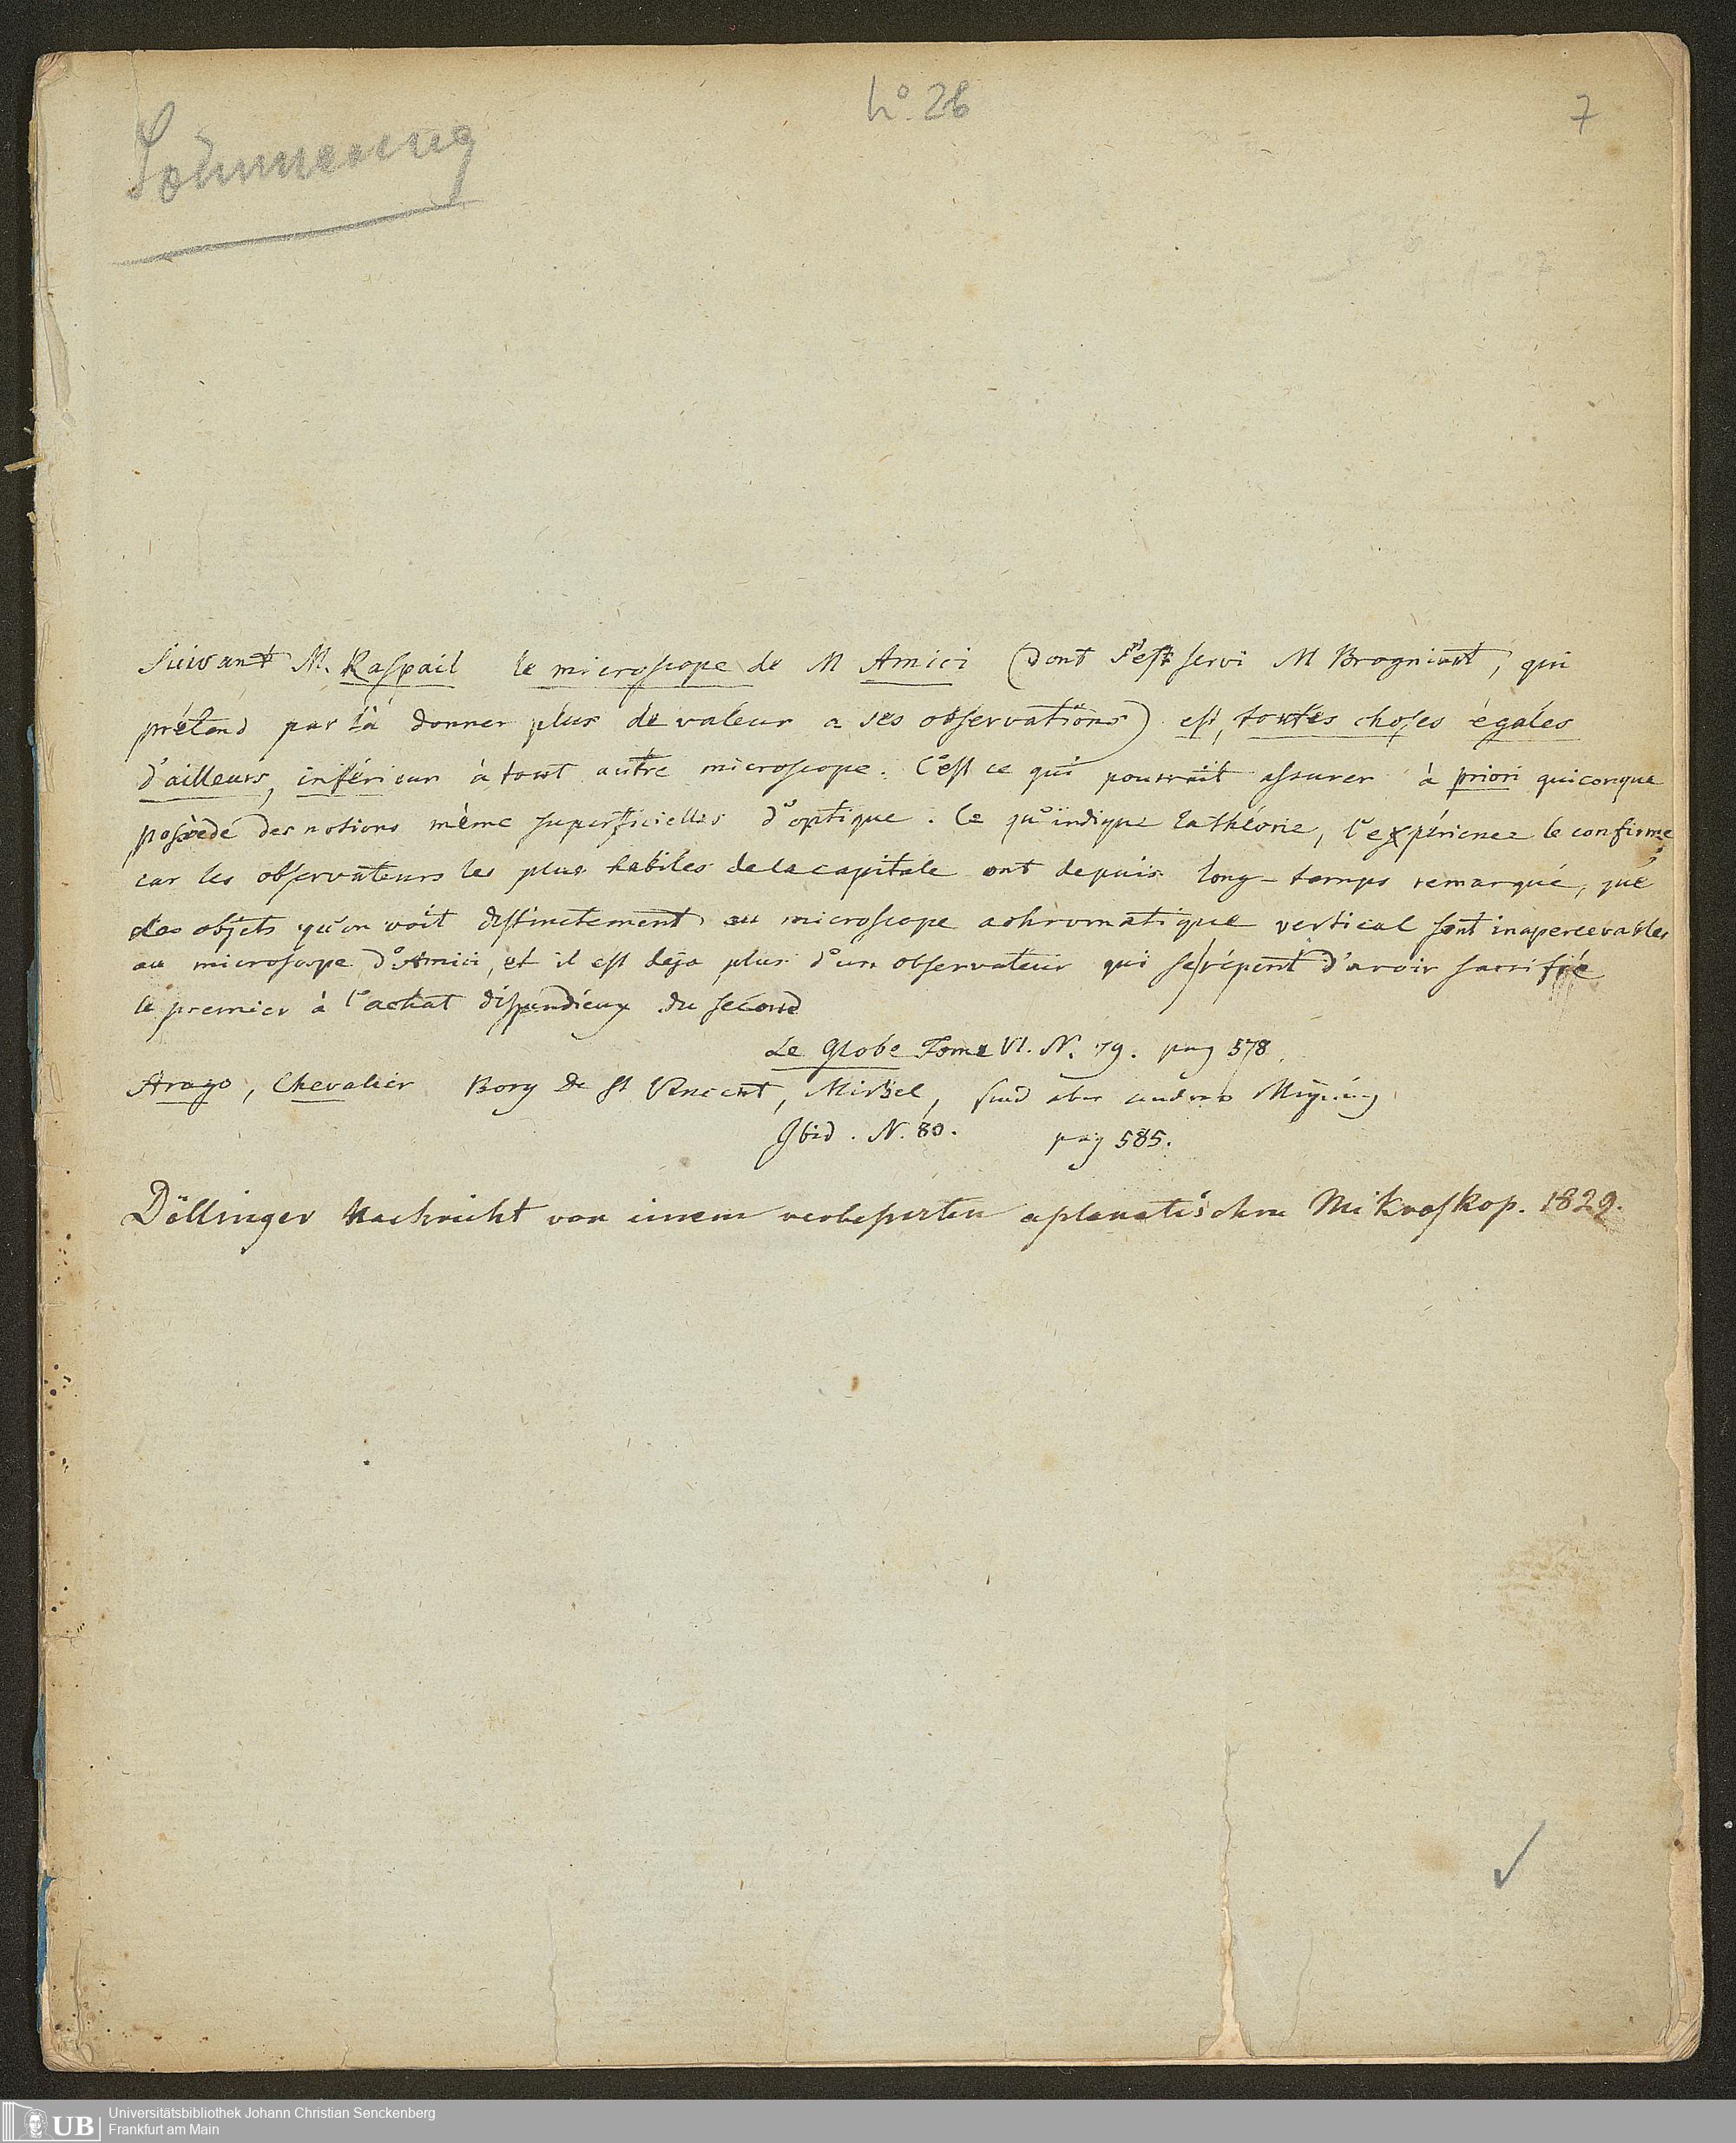 No. 26
7
Sömmerring
Suivant M. Raspail le microscope de M Amici (dont s'est servi M Brogniart, qui
prétend par là donner plus de valeur a ses observations) est, toutes choses égales
d'ailleurs, inférieur à tout autre microscope. C'est ce qui pourrait assurer à priori quiconque
possède des notions même superficielles d'optique. Ce qu'indique la théorie, l'expérience le confirme
car les observateurs les plus habiles de la capitale ont depuis long-temps remarqué, que
des objets qu'on voit distinctement au microscope achromatique vertical sont inapercevables
au microscope d'Amici, et il est deja plus d'un observateur qui se répent d'avoir sacrifié
le premier à l'achat dispendieux du second
Le Globe Tome VI. N. 79. pag 578.
Arago, Chevalier Bory de St Vincent, Mirbel, sind aber andrer Meynung
Ibid. N. 80. pag 585.
Döllinger Nachricht von einem verbesserten aplanatischen Mikroskop. 1829.
UB
Universitätsbibliothek Johann Christian Senckenberg
Frankfurt am Main